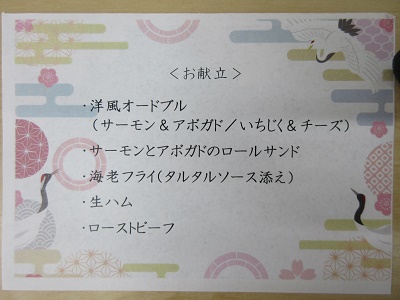 ＜お献立＞
・洋風オードブル
（サーモン＆アボガド／いちじく＆チーズ）
・サーモンとアボガドのロールサンド
・海老フライ（タルタルソース添え）
・生ハム
・ローストビーフ